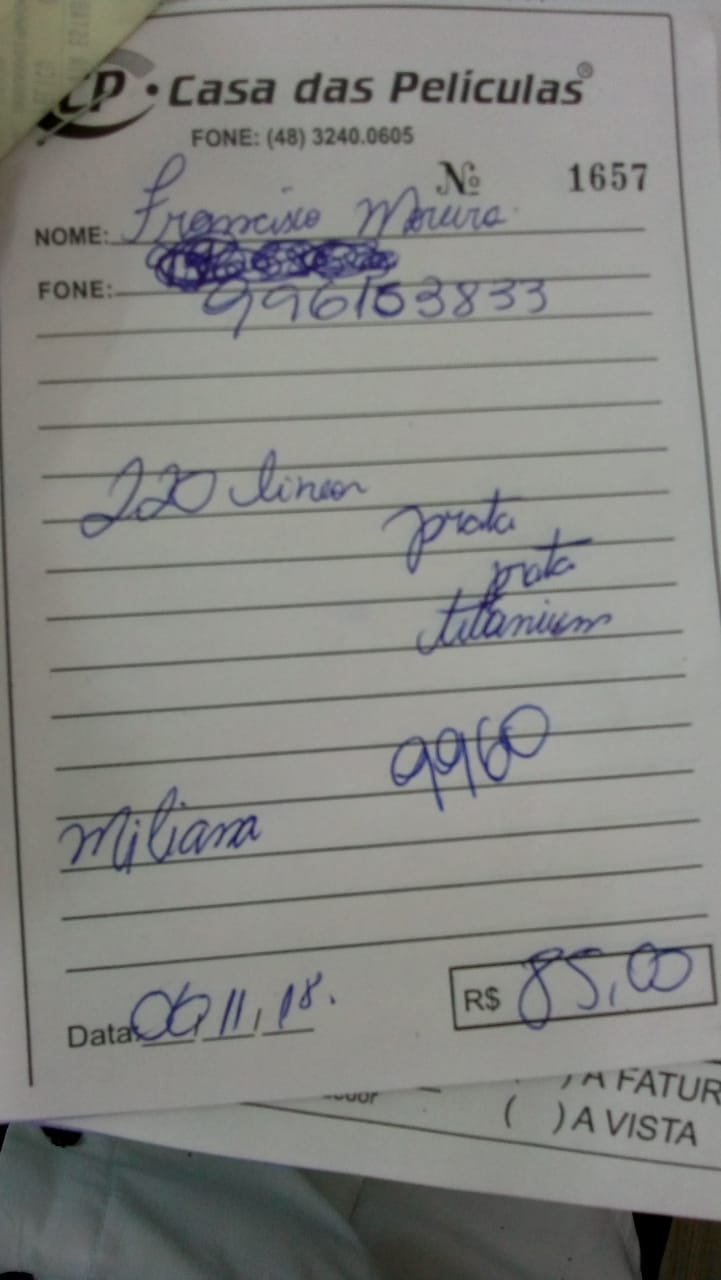 CP • Casa das Películas®
FONE: (48) 3240.0605
Nº 1657
NOME: Francisco Moreira
FONE:
996153833
220 linear
prata
prata
titanium
9960
Miliana
Data: 06, 11, 18.
R$ 85,00
) A FATUR
( ) A VISTA